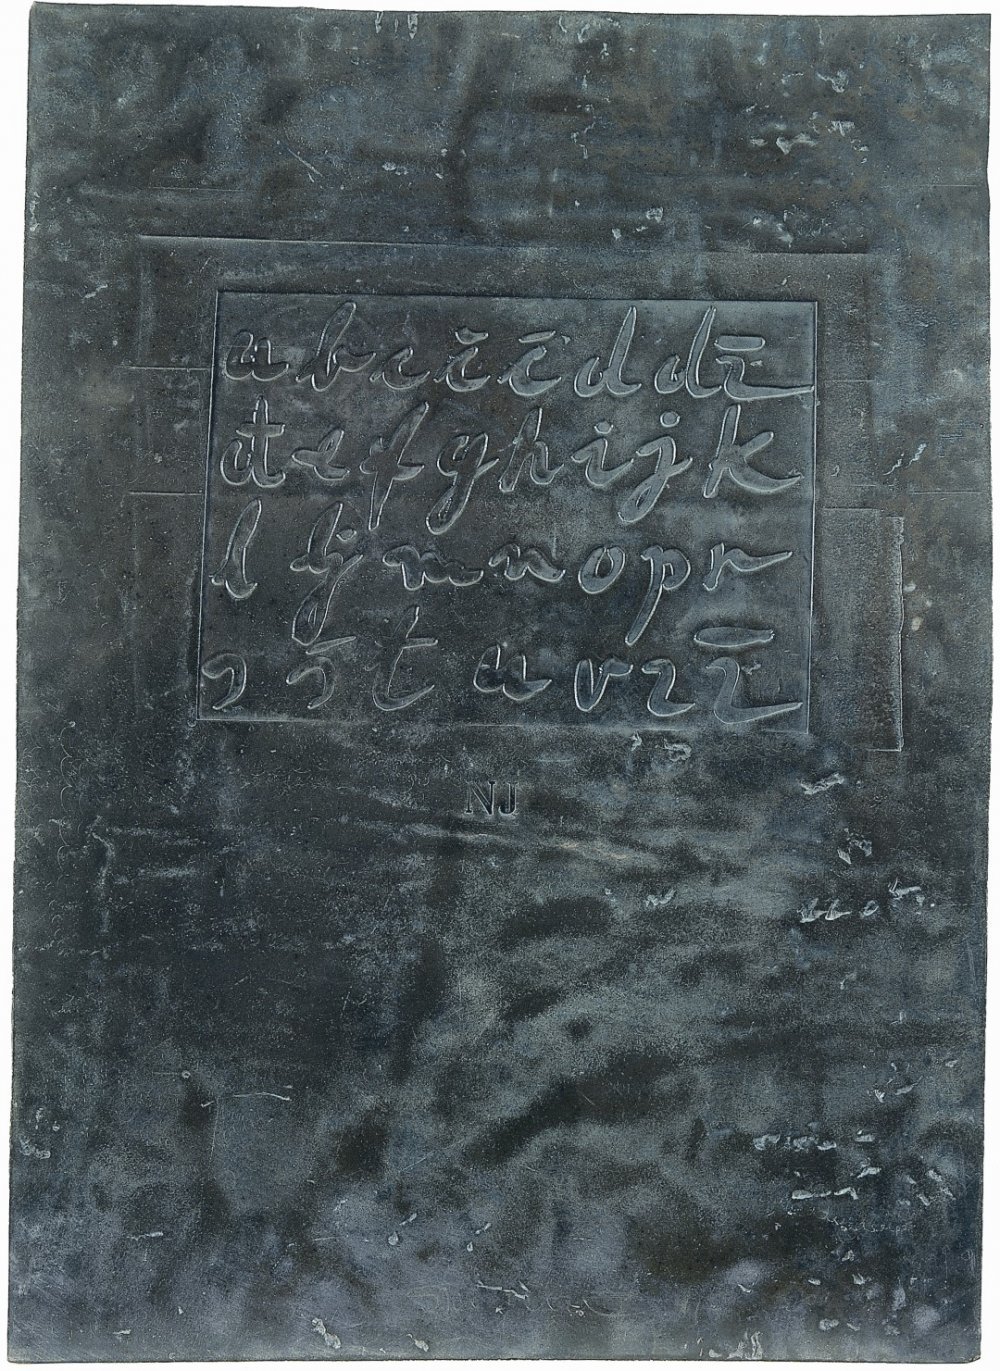 a b c č ć d dž
đ e f g h i j k
l lj m n o p r
s š t u v z ž
NJ